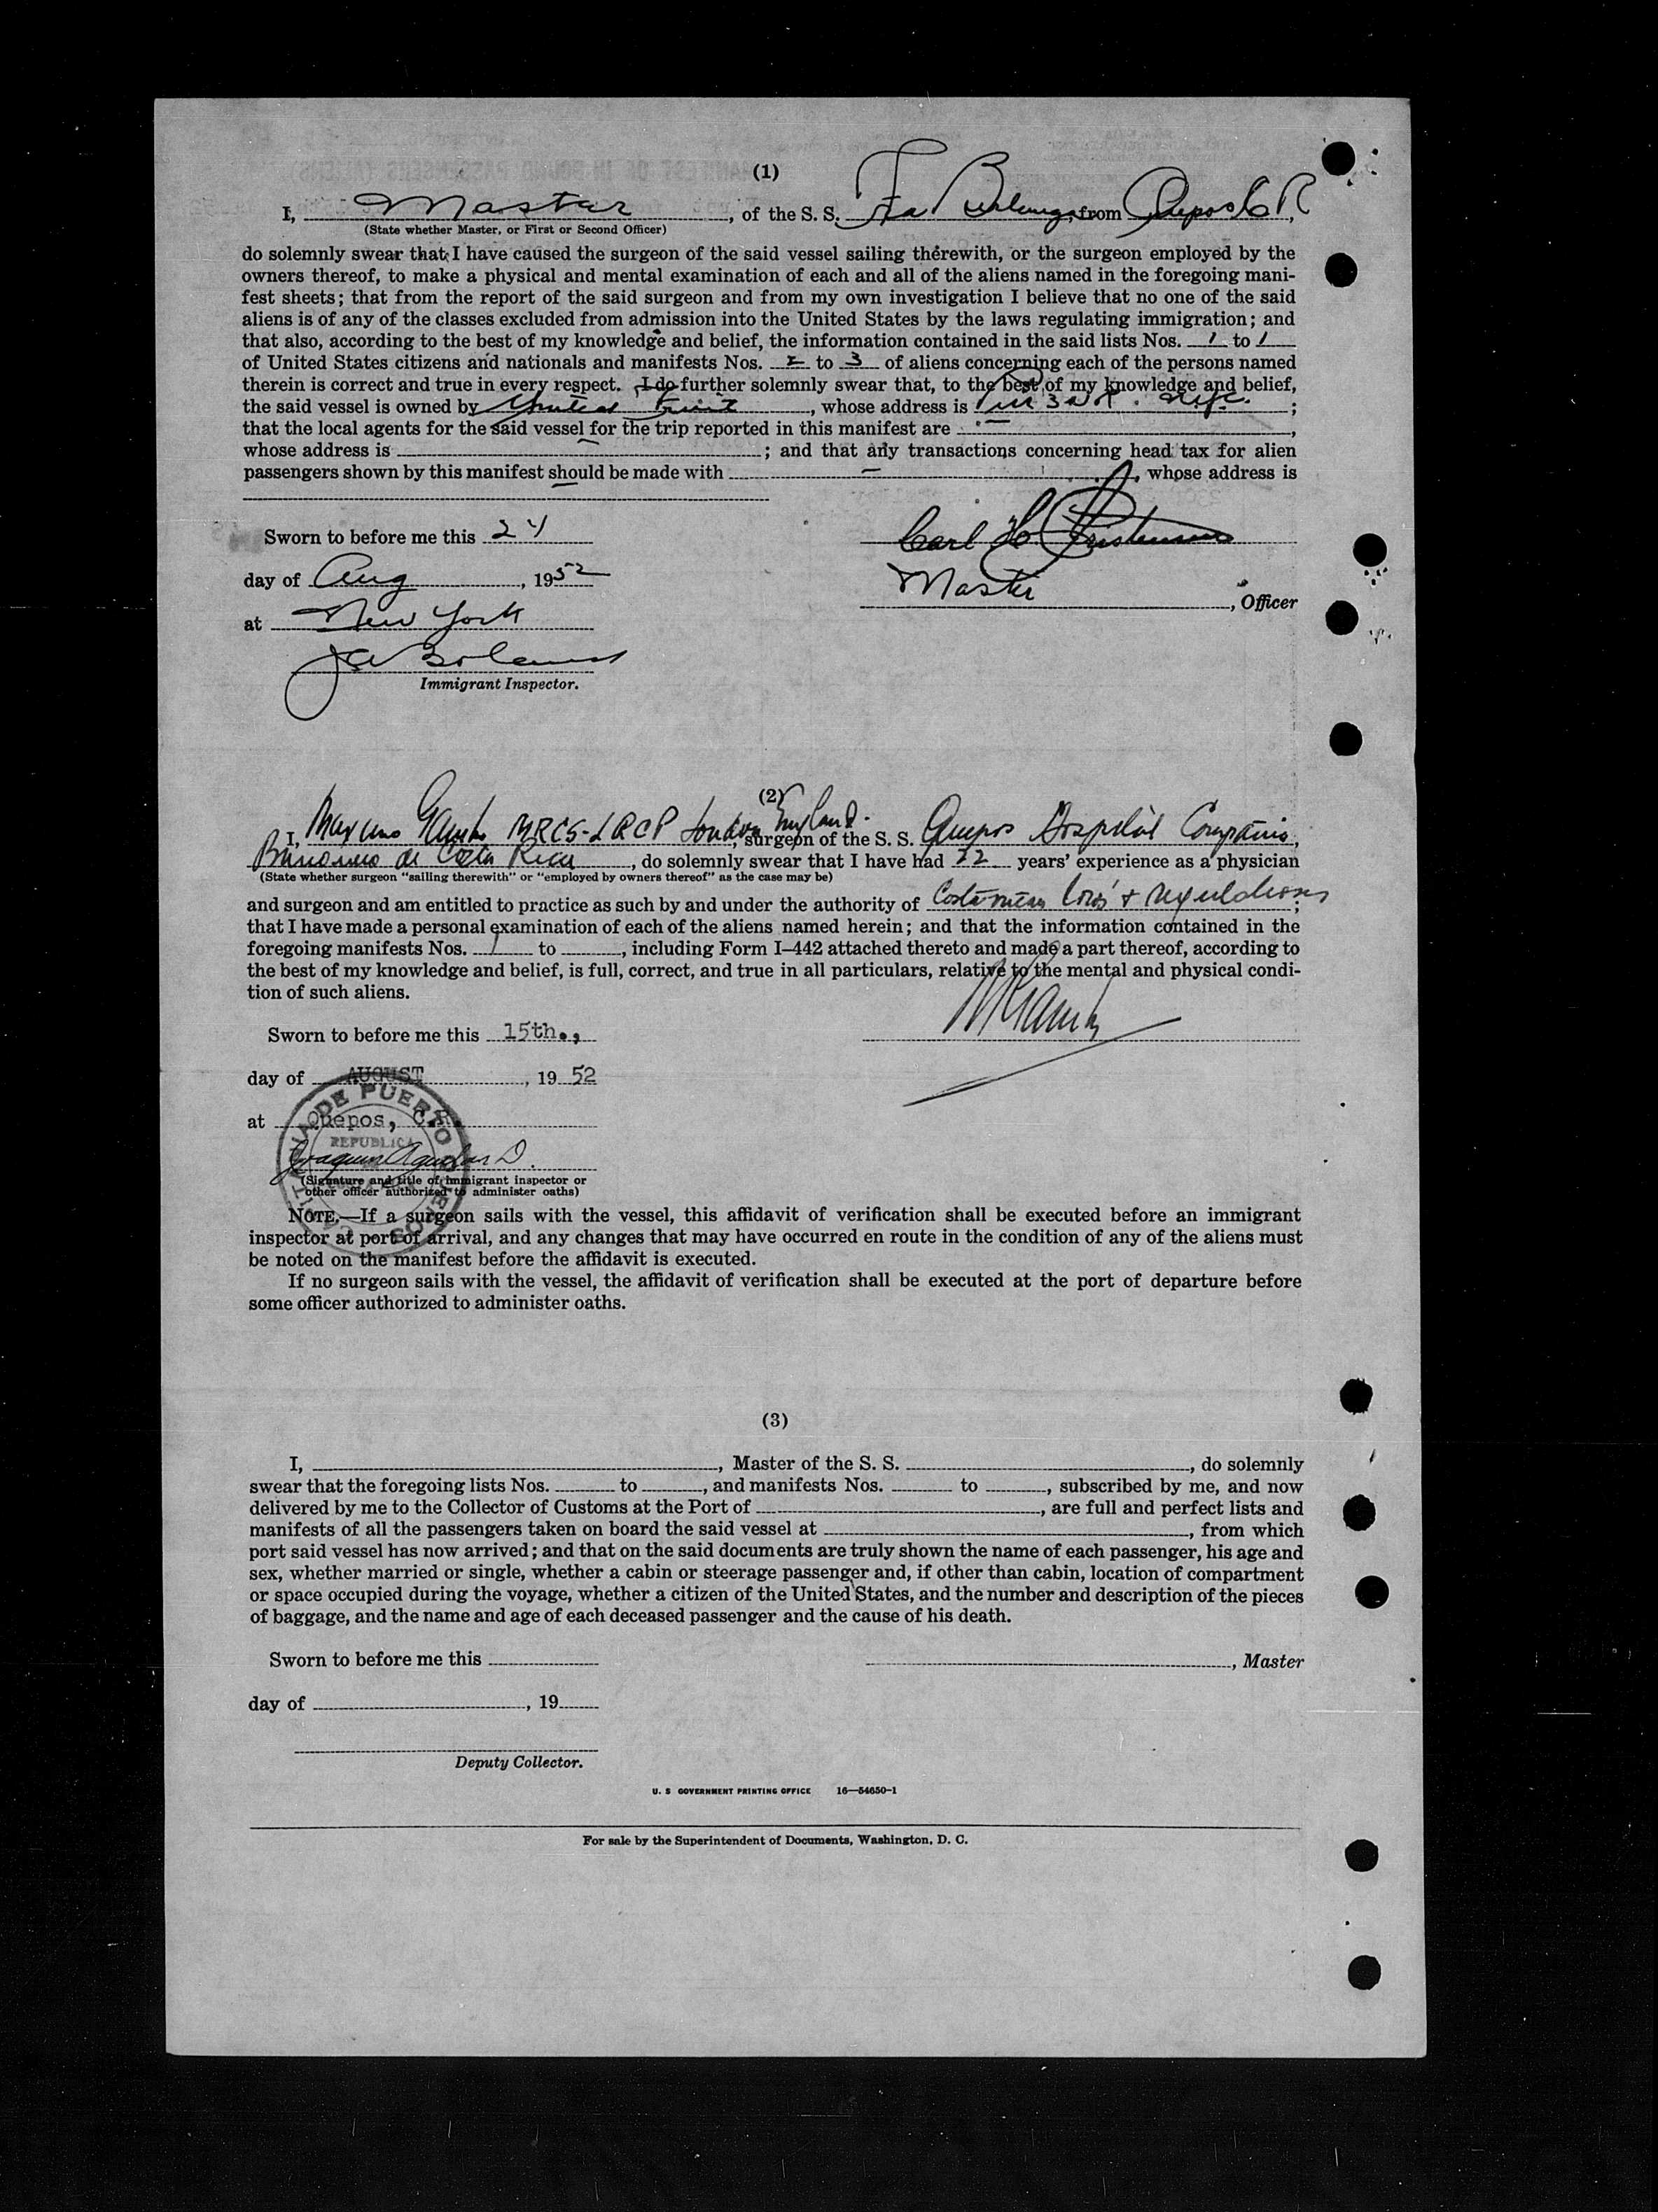 (1)
I, Master, of the S. S. Fra Berlanga, from Quepos C R,
(State whether Master, or First or Second Officer)
do solemnly swear that I have caused the surgeon of the said vessel sailing therewith, or the surgeon employed by the
owners thereof, to make a physical and mental examination of each and all of the aliens named in the foregoing mani-
fest sheets; that from the report of the said surgeon and from my own investigation I believe that no one of the said
aliens is of any of the classes excluded from admission into the United States by the laws regulating immigration; and
that also, according to the best of my knowledge and belief, the information contained in the said lists Nos. 1 to 1
of United States citizens and nationals and manifests Nos. 2 to 3 of aliens concerning each of the persons named
therein is correct and true in every respect. I do further solemnly swear that, to the best of my knowledge and belief,
the said vessel is owned by United Fruit, whose address is Pier 3 N R. NYC.;
that the local agents for the said vessel for the trip reported in this manifest are -,
whose address is -; and that any transactions concerning head tax for alien
passengers shown by this manifest should be made with -, whose address is
-
Sworn to before me this 24
Carl H Christensen
day of Aug, 1952
Master, Officer
at New York
Immigrant Inspector.
(2)
I, Maximo MRCS-LRCP London, England. surgeon of the S. S. Quepos Hospital Compañia,
Bananera de Costa Rica, do solemnly swear that I have had 22 years' experience as a physician
(State whether surgeon "sailing therewith" or "employed by owners thereof" as the case may be)
and surgeon and am entitled to practice as such by and under the authority of & regulations;
that I have made a personal examination of each of the aliens named herein; and that the information contained in the
foregoing manifests Nos. 1 to, including Form I-442 attached thereto and made a part thereof, according to
the best of my knowledge and belief, is full, correct, and true in all particulars, relative to the mental and physical condi-
tion of such aliens.
Sworn to before me this 15th.,
day of AUGUST, 19 52
at Quepos, C.R.
REPUBLICA
Joaquin Aguilar D.
(Signature and title of immigrant inspector or
other officer authorized to administer oaths)
NOTE.—If a surgeon sails with the vessel, this affidavit of verification shall be executed before an immigrant
inspector at port of arrival, and any changes that may have occurred en route in the condition of any of the aliens must
be noted on the manifest before the affidavit is executed.
If no surgeon sails with the vessel, the affidavit of verification shall be executed at the port of departure before
some officer authorized to administer oaths.
(3)
I, , Master of the S. S. , do solemnly
swear that the foregoing lists Nos. to , and manifests Nos. to , subscribed by me, and now
delivered by me to the Collector of Customs at the Port of , are full and perfect lists and
manifests of all the passengers taken on board the said vessel at , from which
port said vessel has now arrived; and that on the said documents are truly shown the name of each passenger, his age and
sex, whether married or single, whether a cabin or steerage passenger and, if other than cabin, location of compartment
or space occupied during the voyage, whether a citizen of the United States, and the number and description of the pieces
of baggage, and the name and age of each deceased passenger and the cause of his death.
Sworn to before me this
, Master
day of , 19
Deputy Collector.
U. S GOVERNMENT PRINTING OFFICE 16—54650-1
For sale by the Superintendent of Documents, Washington, D. C.